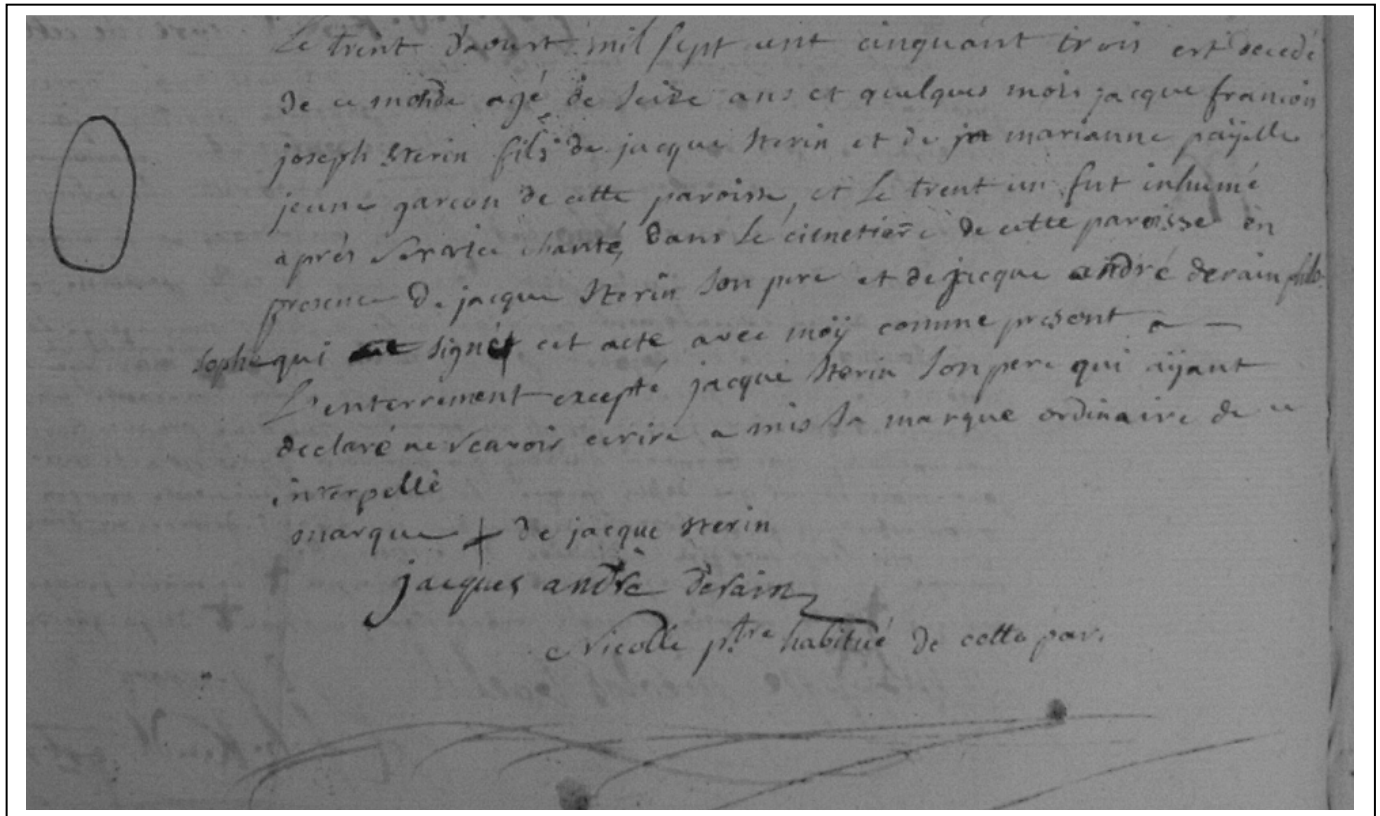 Le trent d'aoust mil sept cent cinquant trois est decedé
de ce monde agé de seize ans et quelques mois jacque francois
joseph sterin fils de jacque sterin et de marianne payelle
jeune garcon de cette paroisse, et le trent un fut inhumé
aprés service chanté, dans le cimetiere de cette paroisse en
presence de jacque sterin son pere et de jacque andré derain philo-
sophe qui signé cet acte avec moÿ comme present a
l'enterrement excepté jacque sterin son pere qui aÿant
declaré ne scavoir ecrire a mis sa marque ordinaire de ce
interpellé
marque + de jacque sterin
jacques andré derain
Nicolle p.tre habitué de cette par.